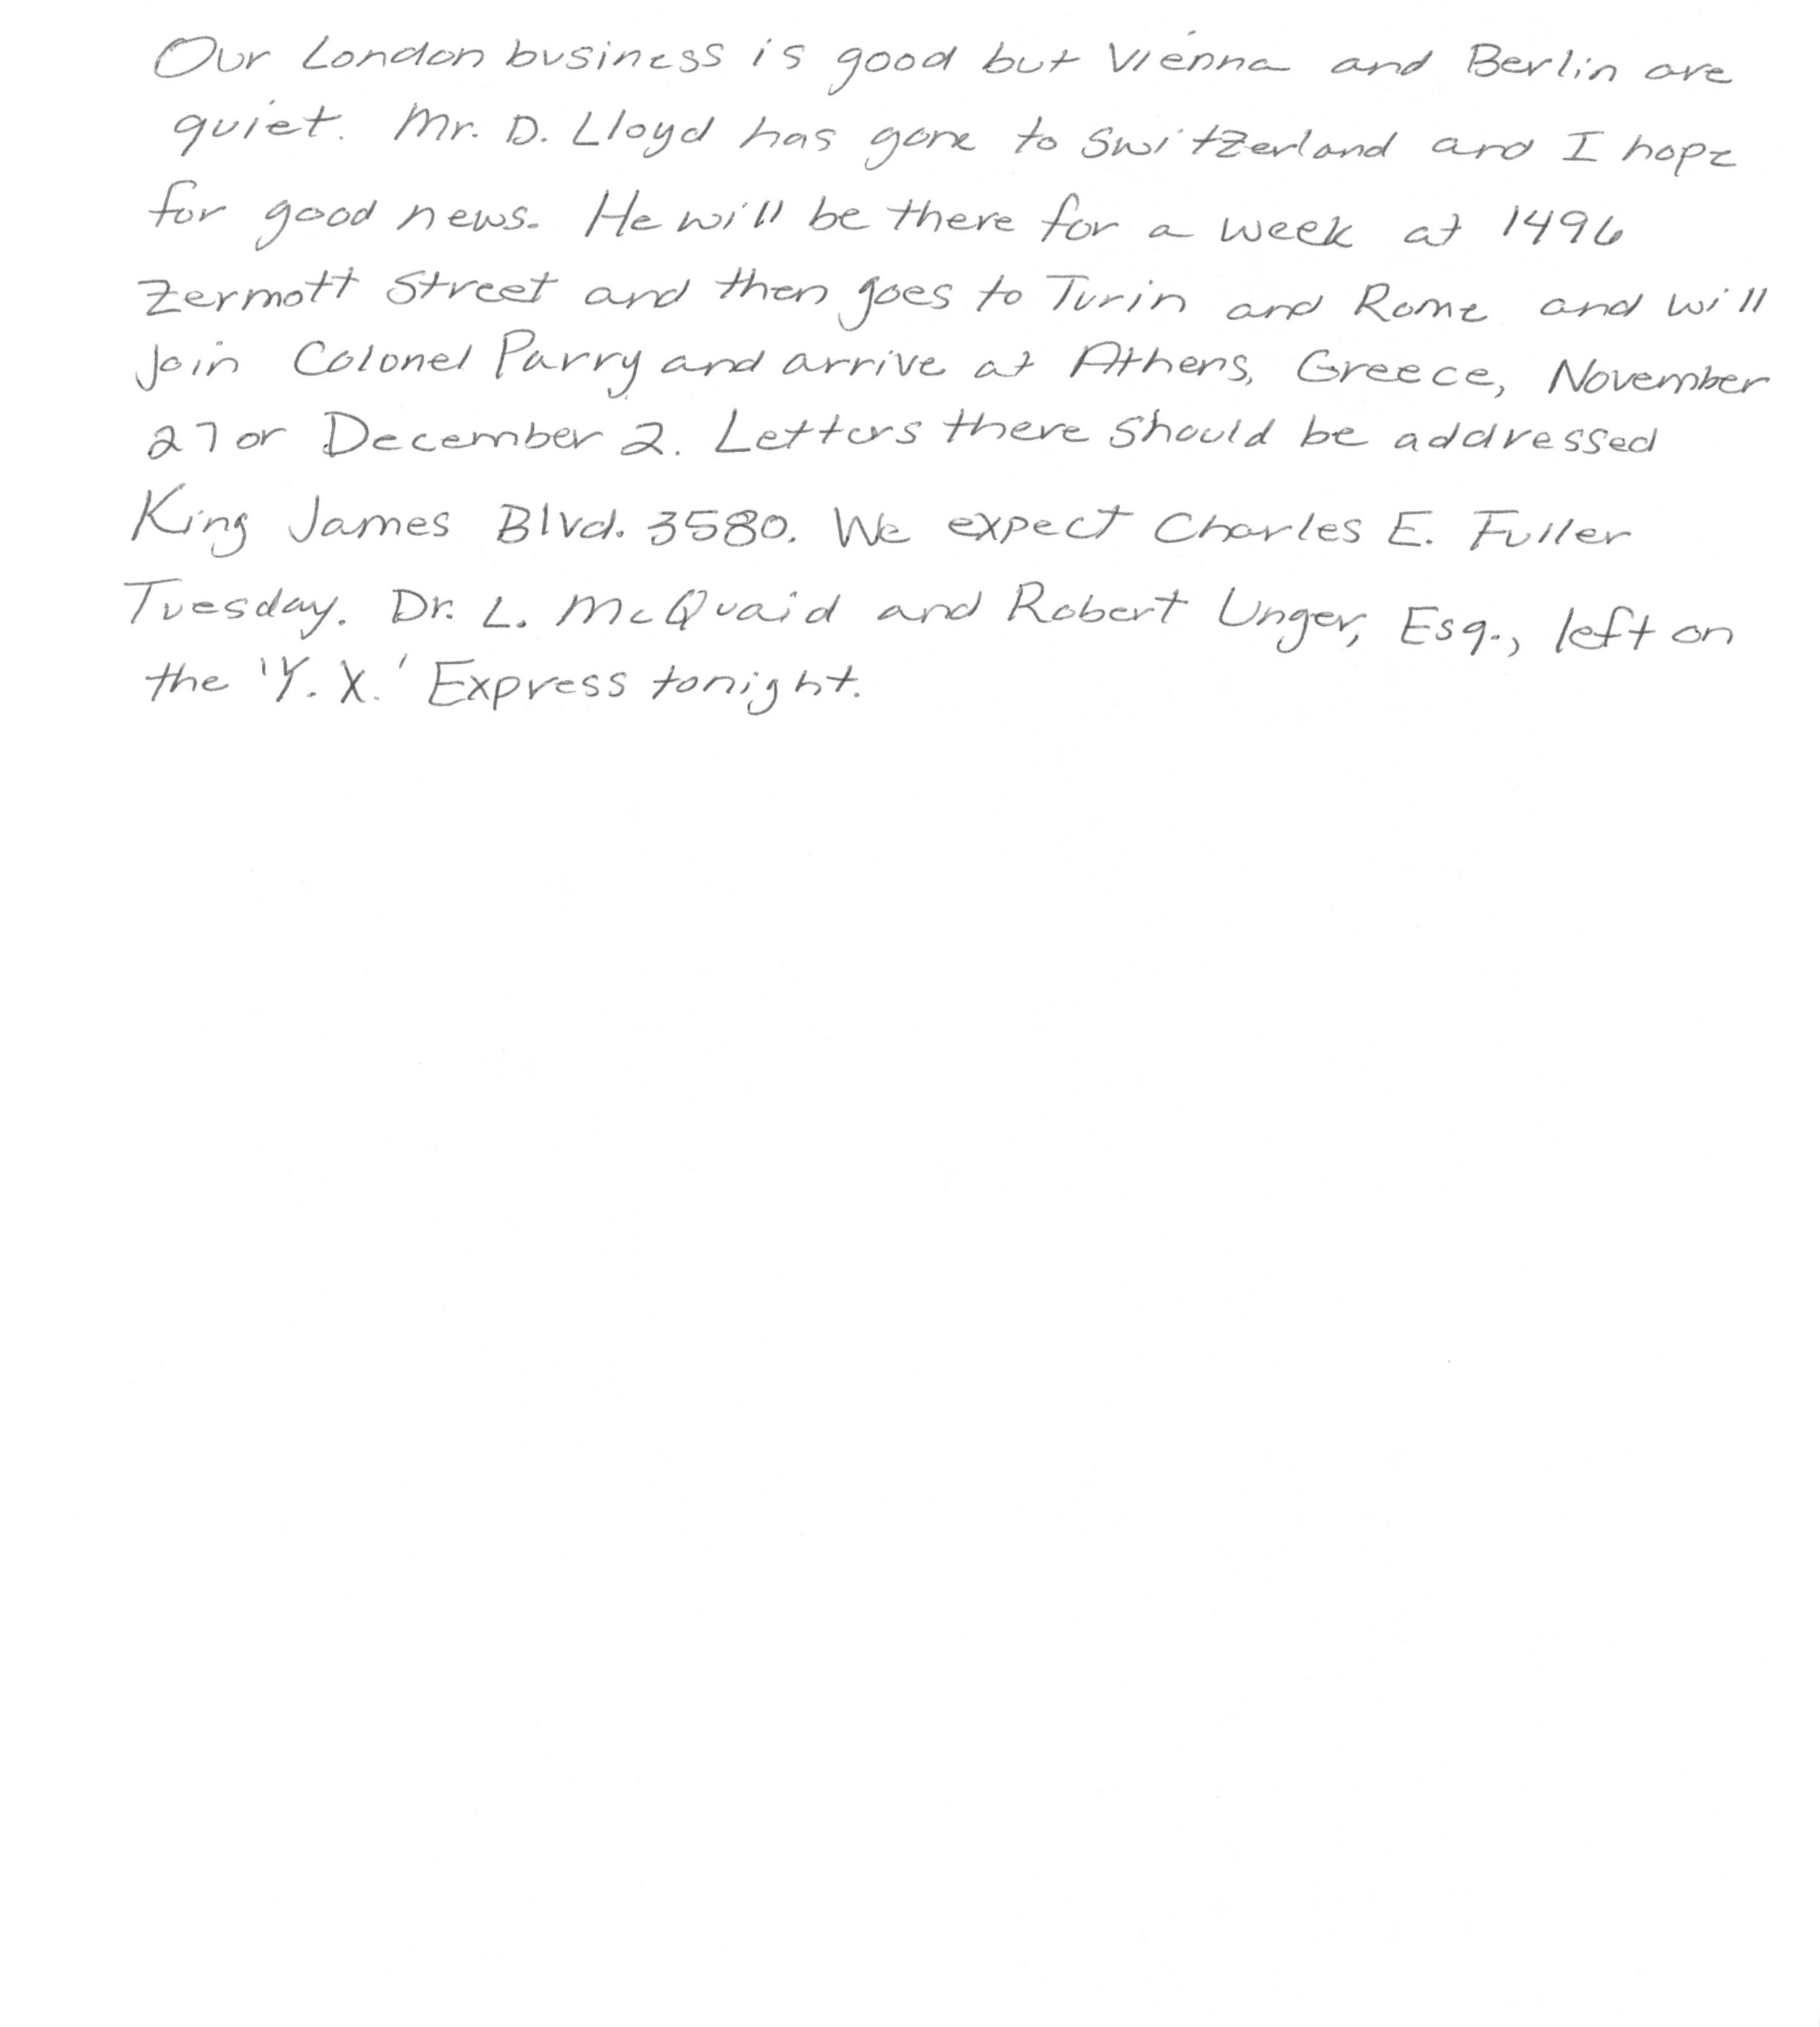 Our London business is good but Vienna and Berlin are
quiet. Mr. D. Lloyd has gone to Switzerland and I hope
for good news. He will be there for a week at 1496
Zermott Street and then goes to Turin and Rome and will
join Colonel Parry and arrive at Athens, Greece, November
27 or December 2. Letters there should be addressed
King James Blvd. 3580. We expect Charles E. Fuller
Tuesday. Dr. L. McQuaid and Robert Unger, Esq., left on
the 'Y. X.' Express tonight.